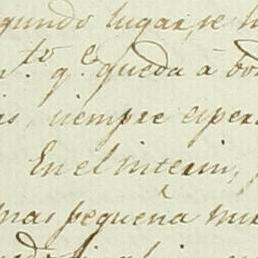 gundo lugar, se h
n.to q.e queda à bor
is, siempre esper
En el interin,
mas pequeña mu